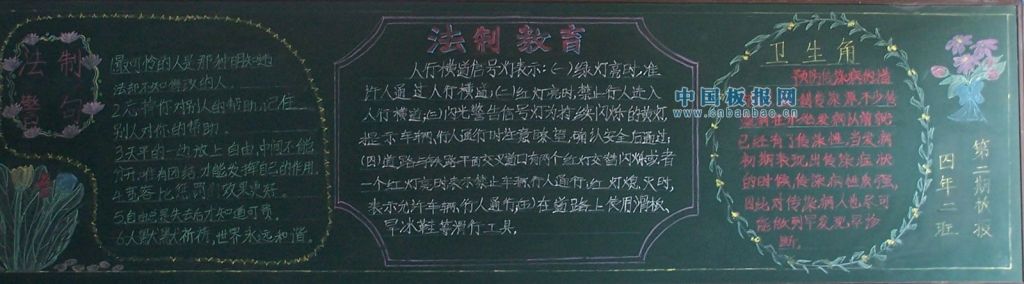 法制
警句
1最可怜的人是那种明知
法却不知
人
2.忘掉你对别人的帮助,记住
别人对你的帮助.
3.天平的一边放上自由,中间不能
才能发挥自己的作用.
4.宽容比惩罚效果更好.
5自由总是失去后才知道可贵.
6.人默默祈祷,世界永远和谐.
法制教育
人行横道信号灯表示:(一)绿灯亮时,准
许人通过人行横道;(二)红灯亮时,禁止行人进入
人行横道;(三)闪光警告信号灯为持续闪烁的黄灯,
提示车辆,行人通行时注意瞭望,确认安全后通过;
(四)道路与铁路平面交叉道口有两个红灯交替闪烁或者
一个红灯亮时表示禁止车辆,行人通行,红灯熄灭时,
表示允许车辆,行人通行;(五)在道路上使用滑板、
旱冰鞋等滑行工具。
中国板报网
www.cnbanbao.cn
卫生角
预防传染病的措
不少传
已经有了传染性,当发病
初期表现出传染症状
的时候,传染病性最强,
因此对传染病人也尽可
能做到早发现,早诊
断.
第二期板报
四年二班